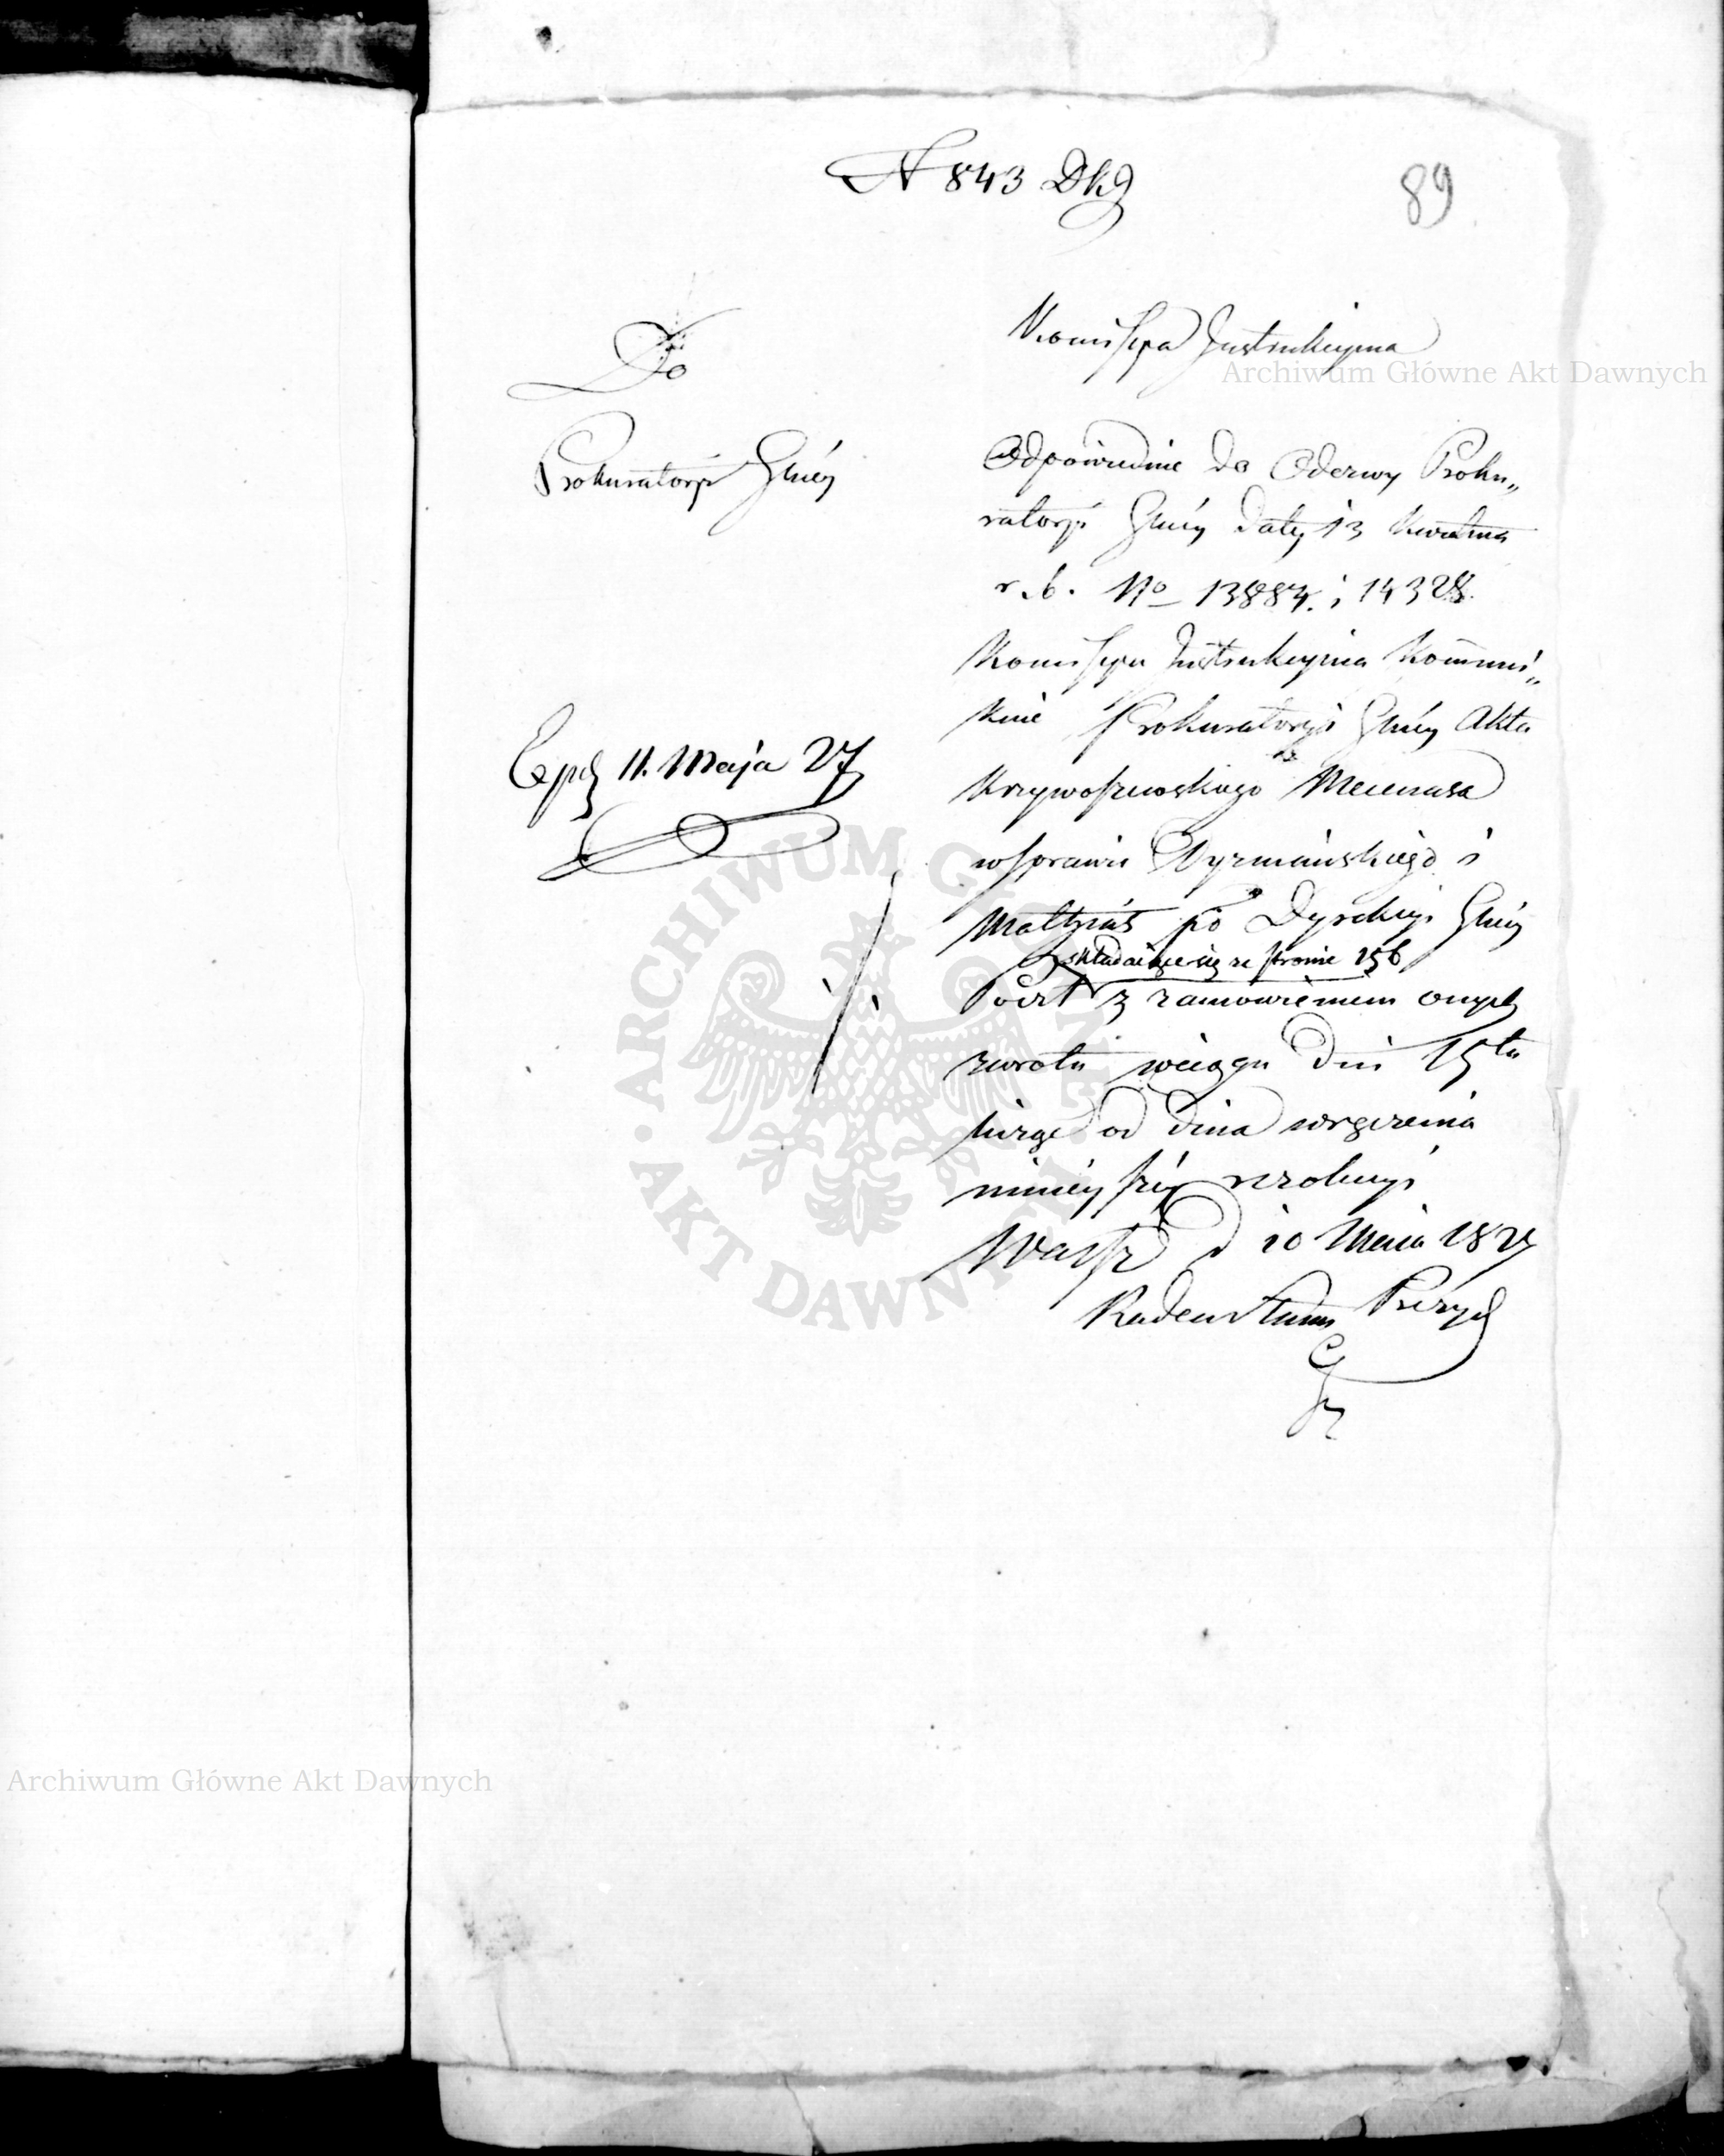 N 843 Dkg
89
Do
Prokuratoryi Głnéy
Exped 11. Maja 27
Kommissya Instrukcyina
Odpowiednie do Odezwy Proku„
ratoryi Głnéy daty 13 Kwietnia
r. b. No 13884. i 14328.
Kommissya Instrukcyina Kommuni„
kuie Prokuratoryi Głnéy Akta
Krzywoszewskiego Mecenasa
w sprawie Dyrmańskiego i
Małżeńs po Dyrekcyi Głnéy
składaiące się ze stronic 156
Poczt z zamówieniem onych
zwrotu wciągu Dni 15tu
licząc od dnia wręczenia
ninieyszéy rezolucyi
Warsz d 10 Maia 1827
Radca Stanu Prezyd
Archiwum Główne Akt Dawnych
Archiwum Główne Akt Dawnych
ARCHIWUM GŁÓWNE AKT DAWNYCH